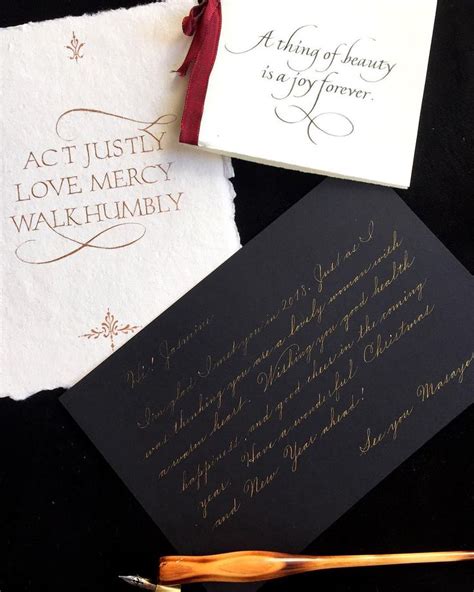 ACT JUSTLY
LOVE MERCY
WALK HUMBLY
A thing of beauty
is a joy forever.
Hi! Jasmine
I'm glad I met you in 2018. Just as I
was thinking you are a lovely woman with
a warm heart. Wishing you good health
happiness, and good cheer in the coming
year. Have a wonderful Christmas
and New Year ahead!
See you Masayo